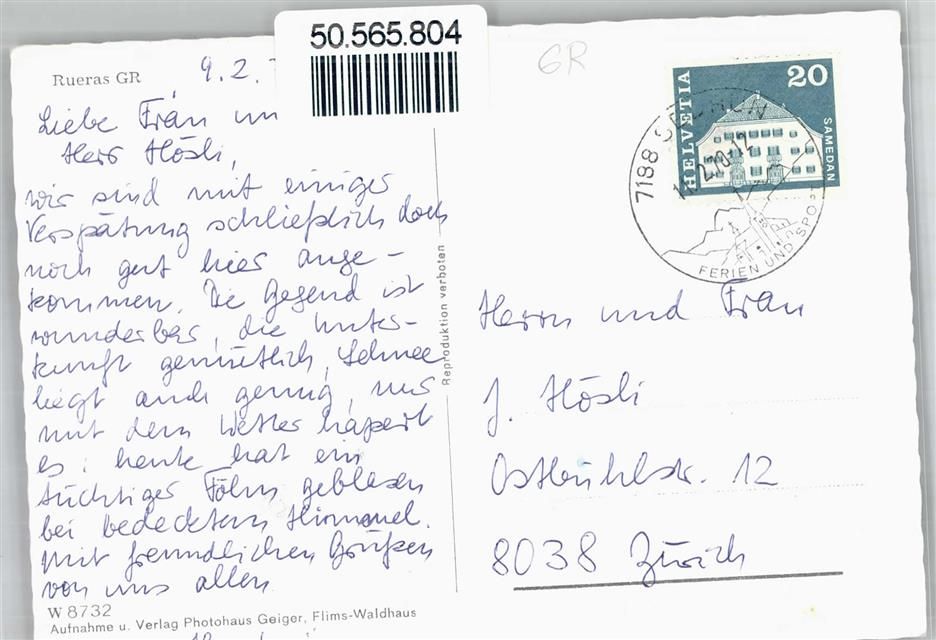 50.565.804
GR
Rueras GR
9.2.
Liebe Frau un
Herr Hösli,
wir sind mit einiger
Verspätung schließlich doch
noch gut hier ange-
kommen. Die Gegend ist
wunderbar, die Unter-
kunft gemütlich, Schnee
liegt auch genug, nur
mit dem Wetter hapert
es: heute hat ein
tüchtiger Föhn geblasen
bei bedecktem Himmel.
Mit freundlichen Grüßen
von uns allen
W 8732
Aufnahme u. Verlag Photohaus Geiger, Flims-Waldhaus
Reproduktion verboten
HELVETIA
20
SAMEDAN
7188 SEDRUN
11.2.70-12
FERIEN UND SPORT
Herrn und Frau
J. Hösli
Ostbühlstr. 12
8038 Zürich